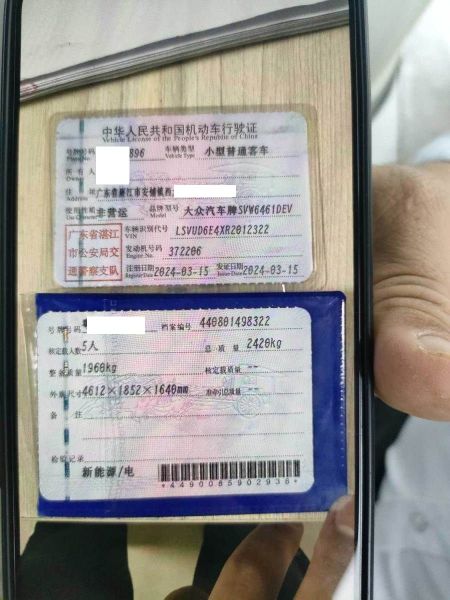 中华人民共和国机动车行驶证
Vehicle License of the People's Republic of China
号牌号码 896 车辆类型 小型普通客车
Plate No. Vehicle Type
所有人
Owner
住址 广东省湛江市安铺镇西
使用性质 非营运 品牌型号 大众汽车牌SVW6461DEV
Model
广东省湛江 车辆识别代号 LSVUD6E4XR2012322
VIN
市公安局交 发动机号码 372206
Engine No.
通警察支队 注册日期 2024-03-15 发证日期 2024-03-15
Register Date Issue Date
号牌号码 档案编号 440801498322
核定载人数 5人 总质量 2420kg
整备质量 1960kg 核定载质量 --
外廓尺寸 4612×1852×1640mm 准牵引总质量 --
备注
检验记录
新能源/电
*4490085902936*